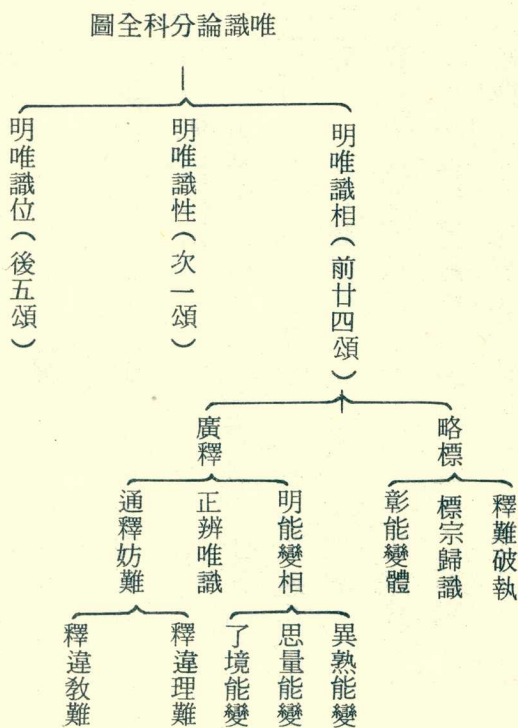 唯識論分科全圖
明唯識相（前廿四頌）
明唯識性（次一頌）
明唯識位（後五頌）
略標
廣釋
釋難破執
標宗歸識
彰能變體
明能變相
正辨唯識
通釋妨難
異熟能變
思量能變
了境能變
釋違理難
釋違教難